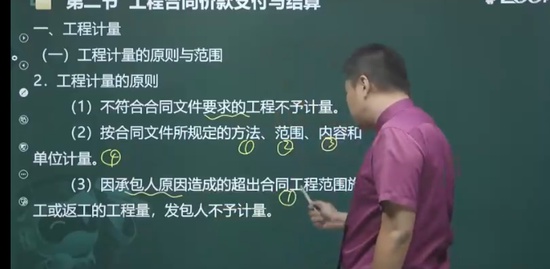 第二节 工程合同价款支付与结算
一、工程计量
（一）工程计量的原则与范围
2．工程计量的原则
（1）不符合合同文件要求的工程不予计量。
（2）按合同文件所规定的方法、范围、内容和
① ② ③
单位计量。④
（3）因承包人原因造成的超出合同工程范围施
①
工或返工的工程量，发包人不予计量。